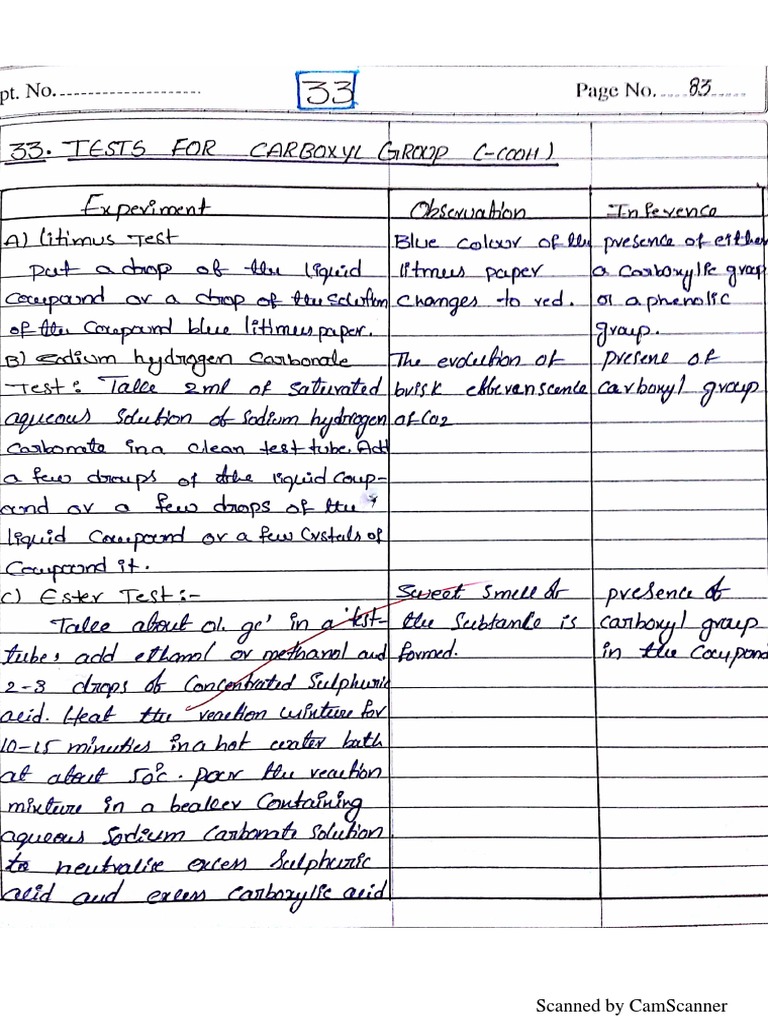 pt. No.
33
Page No. 83
33. TESTS FOR CARBOXYL GROUP (-COOH)
Experiment
Observation
Inference
A) litimus Test
put a drop of the liquid
Coupand or a drop of the solution
of the Coupand blue litimus paper.
Blue colour of the
litmus paper
Changes to red.
presence of either
a carboxylic group
or a phenolic
group.
B) Sodium hydrogen Carbonate
Test: Take 2ml of saturated
aqueous solution of sodium hydrogen
Carbonate in a clean test tube. Add
a few droups of the liquid coup-
and or a few drops of the
liquid Coupand or a few Crstals of
Coupand it.
The evolution of
brisk effervanscence
of Co2
presene of
carboxyl group
C) Ester Test:-
Take about 01. gc' in a 'test-
tube, add ethanol or methanol and
2-3 drops of Concentrated Sulphuric
acid. Heat the reaction mixture for
10-15 minuties in a hot water bath
at about 50°c. poar the reaction
mixture in a beaker Containing
aqueous Sodium Carbonate Solution
to neutralise excess Sulphuric
acid and excess carboxylic acid
Sweet smell of
the Subtanle is
formed.
presence of
carboxyl group
in the Coupand
Scanned by CamScanner